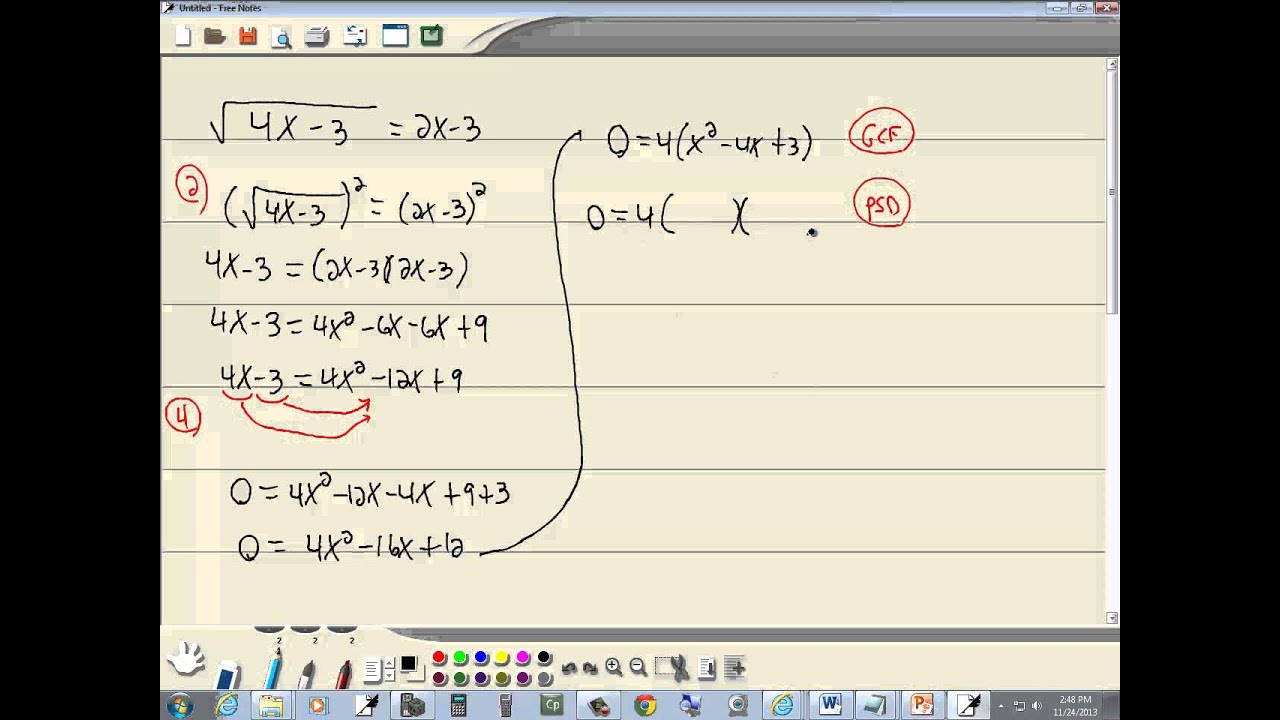 Untitled - Free Notes
√(4x-3) = 2x-3
② (√(4x-3))² = (2x-3)²
4x-3 = (2x-3)(2x-3)
4x-3 = 4x²-6x-6x+9
4x-3 = 4x²-12x+9
④
0 = 4x²-12x-4x+9+3
0 = 4x²-16x+12
0 = 4(x²-4x+3) GCF
0 = 4( )( PSD
2 2 2
Cp
W P
2:48 PM
11/24/2013